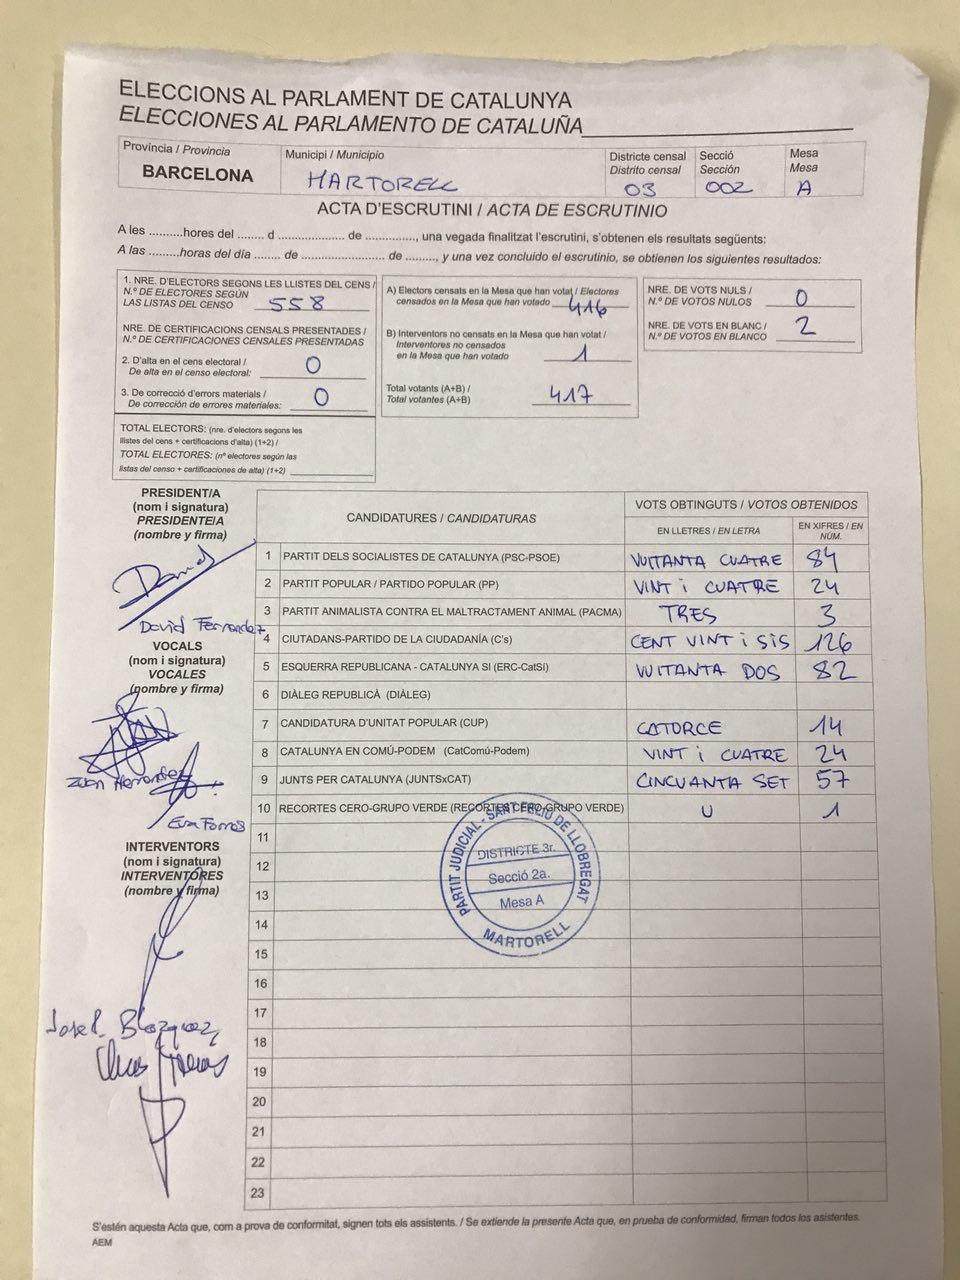 ELECCIONS AL PARLAMENT DE CATALUNYA
ELECCIONES AL PARLAMENTO DE CATALUÑA
Província / Provincia
BARCELONA
Municipi / Municipio
MARTORELL
Districte censal
Distrito censal
03
Secció
Sección
002
Mesa
Mesa
A
ACTA D'ESCRUTINI / ACTA DE ESCRUTINIO
A les .........hores del ........ d .................... de .............., una vegada finalitzat l'escrutini, s'obtenen els resultats següents:
A las .........horas del día ........ de ......................... de ........., y una vez concluido el escrutinio, se obtienen los siguientes resultados:
1. NRE. D'ELECTORS SEGONS LES LLISTES DEL CENS /
N.º DE ELECTORES SEGÚN
LAS LISTAS DEL CENSO 558
NRE. DE CERTIFICACIONS CENSALS PRESENTADES /
N.º DE CERTIFICACIONES CENSALES PRESENTADAS
2. D'alta en el cens electoral /
De alta en el censo electoral: 0
3. De correcció d'errors materials /
De corrección de errores materiales: 0
TOTAL ELECTORS: (nre. d'electors segons les
llistes del cens + certificacions d'alta) (1+2) /
TOTAL ELECTORES: (nº electores según las
listas del censo + certificaciones de alta) (1+2)
A) Electors censats en la Mesa que han votat / Electores
censados en la Mesa que han votado 416
B) Interventors no censats en la Mesa que han votat /
Interventores no censados
en la Mesa que han votado 1
Total votants (A+B) /
Total votantes (A+B) 417
NRE. DE VOTS NULS /
N.º DE VOTOS NULOS 0
NRE. DE VOTS EN BLANC /
N.º DE VOTOS EN BLANCO 2
PRESIDENT/A
(nom i signatura)
PRESIDENTE/A
(nombre y firma)
David
David Fernandez
VOCALS
(nom i signatura)
VOCALES
(nombre y firma)
Juan Hernandez
Eva Forros
INTERVENTORS
(nom i signatura)
INTERVENTORES
(nombre y firma)
Jose P. Blazquez
CANDIDATURES / CANDIDATURAS
VOTS OBTINGUTS / VOTOS OBTENIDOS
EN LLETRES / EN LETRA
EN XIFRES / EN NÚM.
1 PARTIT DELS SOCIALISTES DE CATALUNYA (PSC-PSOE) VUITANTA CUATRE 84
2 PARTIT POPULAR / PARTIDO POPULAR (PP) VINT i CUATRE 24
3 PARTIT ANIMALISTA CONTRA EL MALTRACTAMENT ANIMAL (PACMA) TRES 3
4 CIUTADANS-PARTIDO DE LA CIUDADANÍA (C's) CENT VINT i SIS 126
5 ESQUERRA REPUBLICANA - CATALUNYA SI (ERC-CatSí) VUITANTA DOS 82
6 DIÀLEG REPUBLICÀ (DIÀLEG)
7 CANDIDATURA D'UNITAT POPULAR (CUP) CATORCE 14
8 CATALUNYA EN COMÚ-PODEM (CatComú-Podem) VINT i CUATRE 24
9 JUNTS PER CATALUNYA (JUNTSxCAT) CINCUANTA SET 57
10 RECORTES CERO-GRUPO VERDE (RECORTES CERO-GRUPO VERDE) U 1
11
12
13
14
15
16
17
18
19
20
21
22
23
PARTIT JUDICIAL - SANT FELIU DE LLOBREGAT
DISTRICTE 3r.
Secció 2a.
Mesa A
MARTORELL
S'estén aquesta Acta que, com a prova de conformitat, signen tots els assistents. / Se extiende la presente Acta que, en prueba de conformidad, firman todos los asistentes.
AEM